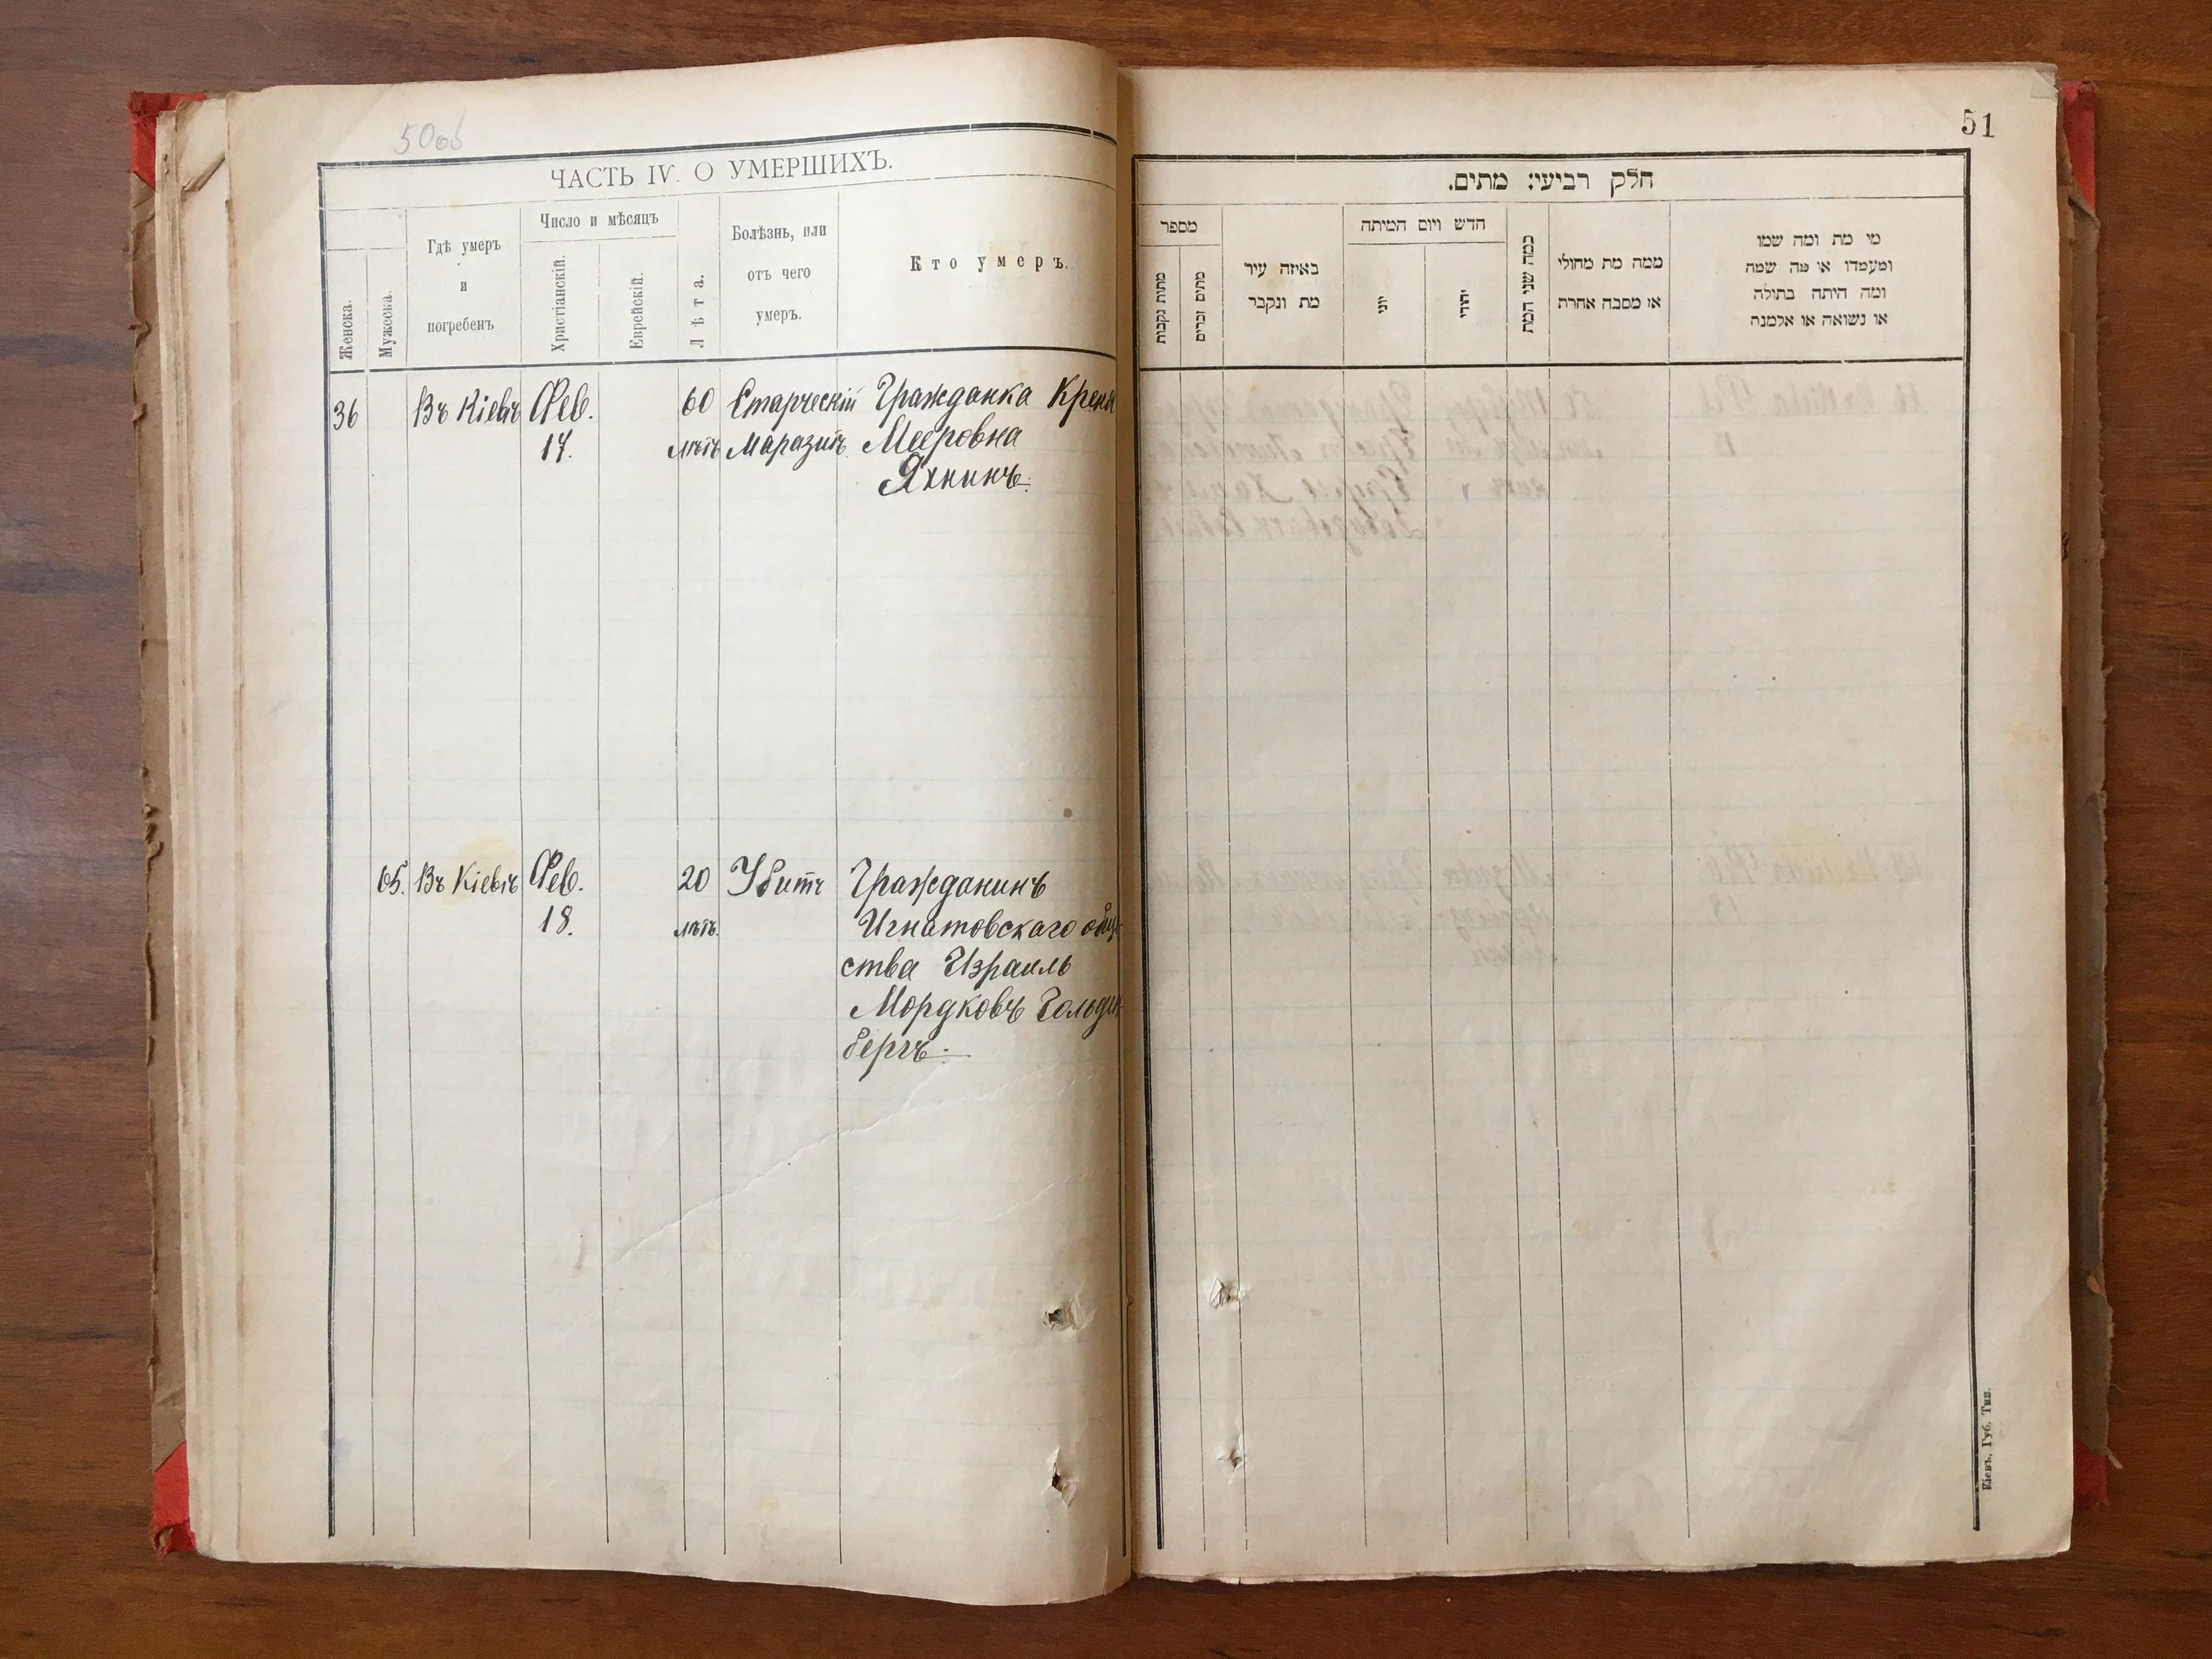 50об
ЧАСТЬ IV. О УМЕРШИХЪ.
Женска.
Мужеска.
Гдѣ умеръ
и
погребенъ
Число и мѣсяцъ
Христіанскій.
Еврейскій.
Лѣта.
Болѣзнь, или
отъ чего
умеръ.
Кто умеръ.
36 Въ Кіевѣ Фев. 60 Старческій Гражданка Крейня
17. лѣтъ Маразмъ. Мееровна
Яхнинъ.
65. Въ Кіевѣ Фев. 20 Убитъ Гражданинъ
18. лѣтъ. Игнатовскаго обще
ства Израиль
Мордковъ Гольден
бергъ.
51
חלק רביעי: מתים.
מספר
מתות נקבות
מתים זכרים
באיזה עיר
מת ונקבר
חדש ויום המיתה
יוני
יהודי
כמה שני המת
ממה מת מחולי
או מסבה אחרת
מי מת ומה שמו
ומעמדו או מה שמה
ומה היתה בתולה
או נשואה או אלמנה
Кіевъ, Губ. Тип.